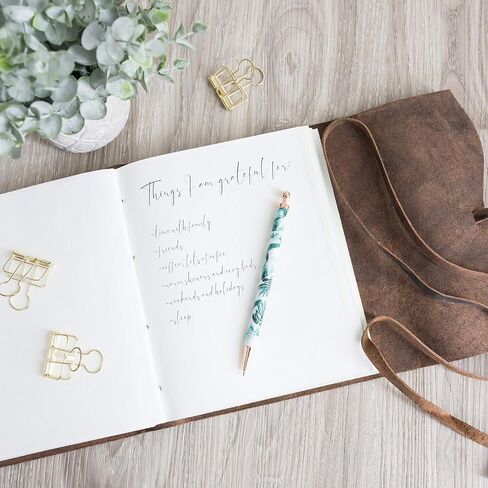 Things I am grateful for:
-time with family
-friends
-coffee, lots of coffee
-warm showers and cozy beds
-weekends and holidays
-sleep